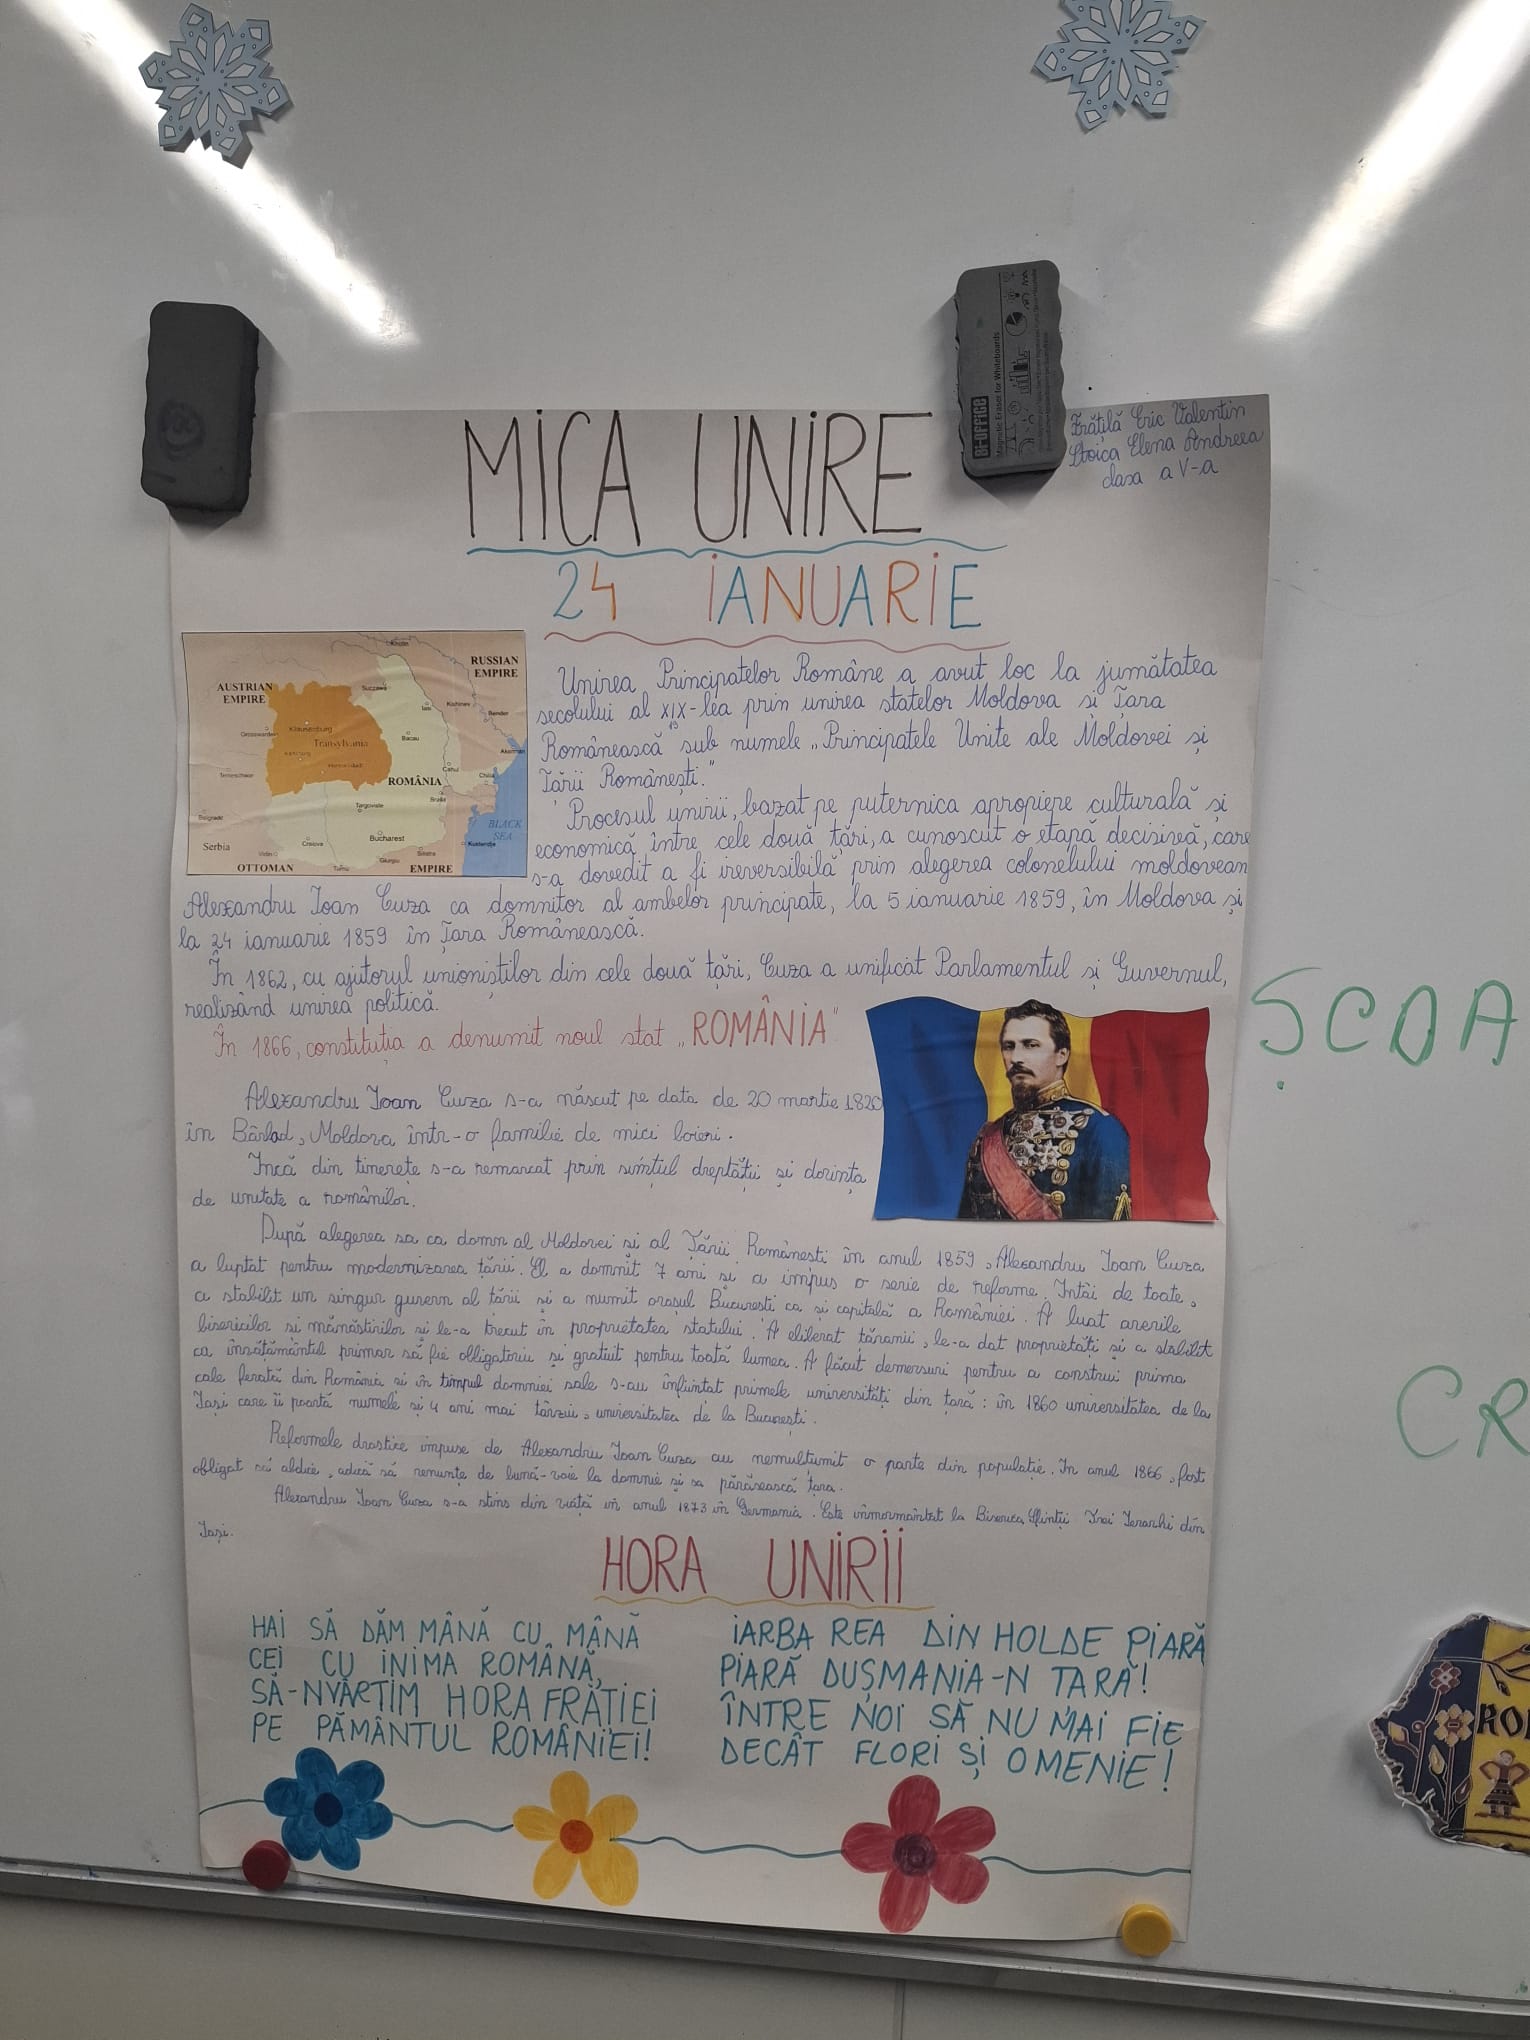 BI-OFFICE
Magnetic Eraser for Whiteboards
Frățilă Eric Valentin
Stoica Elena Andreea
clasa a V-a
MICA UNIRE
24 IANUARIE
RUSSIAN
EMPIRE
AUSTRIAN
EMPIRE
Khotin
Suczawa
Iasi
Kishinev
Bender
Grosswardein
Klausenburg
Transylvania
Bacau
Akerman
Temeschwar
ROMÂNIA
Cahul
Chilia
Braila
Targoviste
Belgrade
BLACK
SEA
Bucharest
Serbia
Craiova
Kustendje
Vidin
Giurgiu
Silistra
OTTOMAN
Turnu
EMPIRE
Unirea Principatelor Române a avut loc la jumătatea
secolului al XIX-lea prin unirea statelor Moldova și Țara
19
Românească sub numele „Principatele Unite ale Moldovei și
Țării Românești."
Procesul unirii, bazat pe puternica apropiere culturală și
economică între cele două țări, a cunoscut o etapă decisivă, care
s-a dovedit a fi ireversibilă prin alegerea colonelului moldovean
Alexandru Ioan Cuza ca domnitor al ambelor principate, la 5 ianuarie 1859, în Moldova și
la 24 ianuarie 1859 în Țara Românească.
În 1862, cu ajutorul unioniștilor din cele două țări, Cuza a unificat Parlamentul și Guvernul,
realizând unirea politică.
În 1866, constituția a denumit noul stat „ROMÂNIA"
Alexandru Ioan Cuza s-a născut pe data de 20 martie 1820
în Bârlad, Moldova într-o familie de mici boieri.
Încă din tinerețe s-a remarcat prin simțul dreptății și dorința
de unitate a românilor.
După alegerea sa ca domn al Moldovei și al Țării Românești în anul 1859, Alexandru Ioan Cuza
a luptat pentru modernizarea țării. El a domnit 7 ani și a impus o serie de reforme. Întâi de toate,
a stabilit un singur guvern al țării și a numit orașul București ca și capitală a României. A luat averile
bisericilor și mănăstirilor și le-a trecut în proprietatea statului. A eliberat țăranii, le-a dat proprietăți și a stabilit
ca învățământul primar să fie obligatoriu și gratuit pentru toată lumea. A făcut demersuri pentru a construi prima
cale ferată din România și în timpul domniei sale s-au înființat primele universități din țară: în 1860 universitatea de la
Iași care îi poartă numele și 4 ani mai târziu, universitatea de la București.
Reformele drastice impuse de Alexandru Ioan Cuza au nemulțumit o parte din populație. În anul 1866, fost
obligat să abdice, adică să renunțe de bună-voie la domnie și sa părăsească țara.
Alexandru Ioan Cuza s-a stins din viață în anul 1873 în Germania. Este înmormântat la Biserica Sfinții Trei Ierarhi din
Iași.
HORA UNIRII
HAI SĂ DĂM MÂNĂ CU MÂNĂ
CEI CU INIMA ROMÂNĂ,
SĂ-NVÂRTIM HORA FRĂȚIEI
PE PĂMÂNTUL ROMÂNIEI!
IARBA REA DIN HOLDE PIARĂ
PIARĂ DUȘMANIA-N ȚARĂ!
ÎNTRE NOI SĂ NU MAI FIE
DECÂT FLORI ȘI OMENIE!
ȘCOA
CR
RO